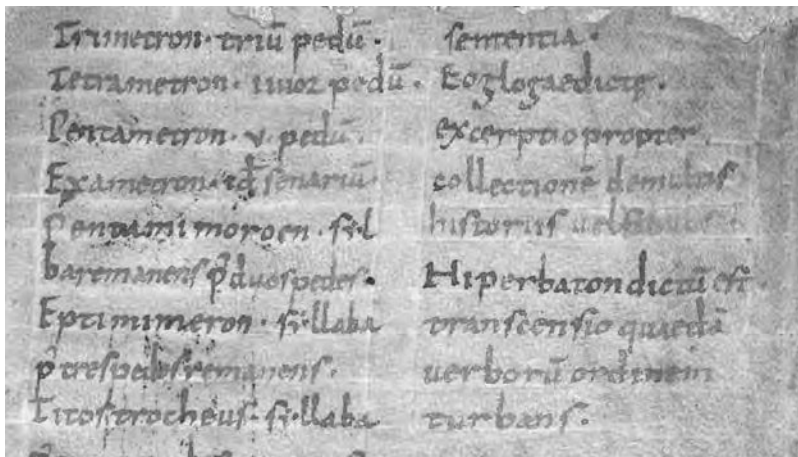 Trimetron· triū pedū·
Tetrametron· iiiior pedū·
Pentametron· v· pedū·
Exametron· senariū·
Pentamimoroen· sil
baremanens p̄ duos pedes·
Eptimimeron· sillaba
p̄ tres pedes remanens·
Titostrocheus· sillaba
sententia·
Eoglogae dictę·
excerptio propter
collectionē de multis
historiis vel
Hiperbaton dictū est
transcensio quaedā
verborū ordinem
turbans·